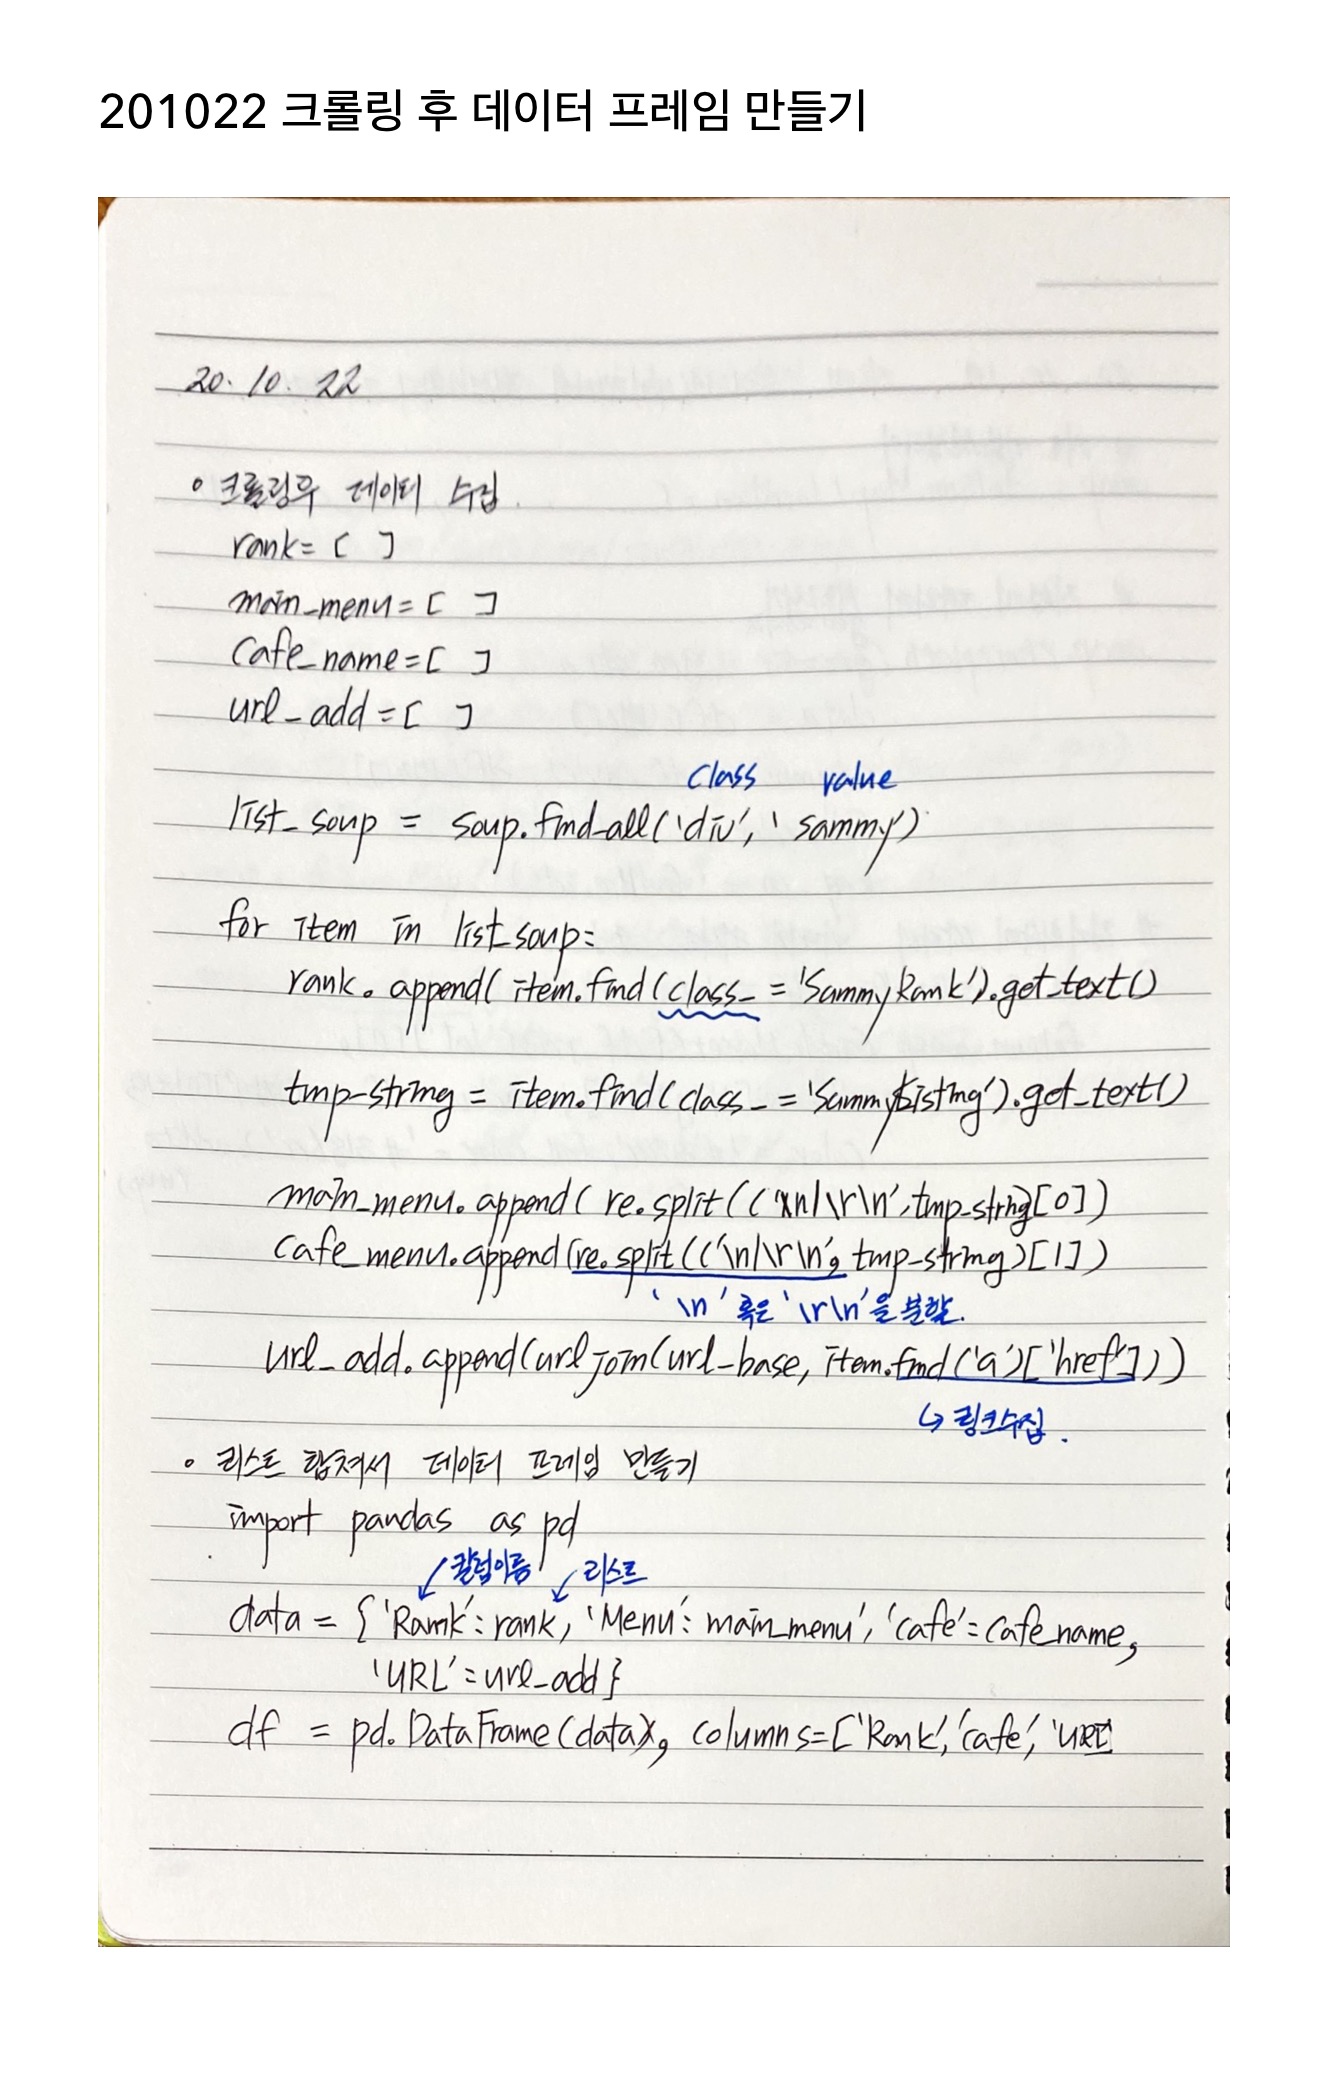 201022 크롤링 후 데이터 프레임 만들기
20. 10. 22
◦ 크롤링후 데이터 수집.
rank= [ ]
main_menu= [ ]
cafe_name=[ ]
url_add=[ ]
class value
list_soup = soup.find_all('div', 'sammy')
for item in list_soup:
rank.append( item.find(class_ = 'sammyRank').get_text()
tmp_string = item.find(class_ = 'sammyListing').get_text()
main_menu.append( re.split(('\n|\r\n', tmp_string[0])
cafe_menu.append(re.split(('\n|\r\n', tmp_string)[1])
'\n' 혹은 '\r\n'을 분할.
url_add.append(urljoin(url_base, item.find('a')['href']))
↳ 링크수집.
◦ 리스트 합쳐서 데이터 프레임 만들기
import pandas as pd
↙칼럼이름 ↙리스트
data = {'Rank': rank, 'Menu': main_menu', 'cafe'= cafe_name,
'URL'= url_add}
df = pd.DataFrame(data), columns=['Rank', 'cafe', 'URL